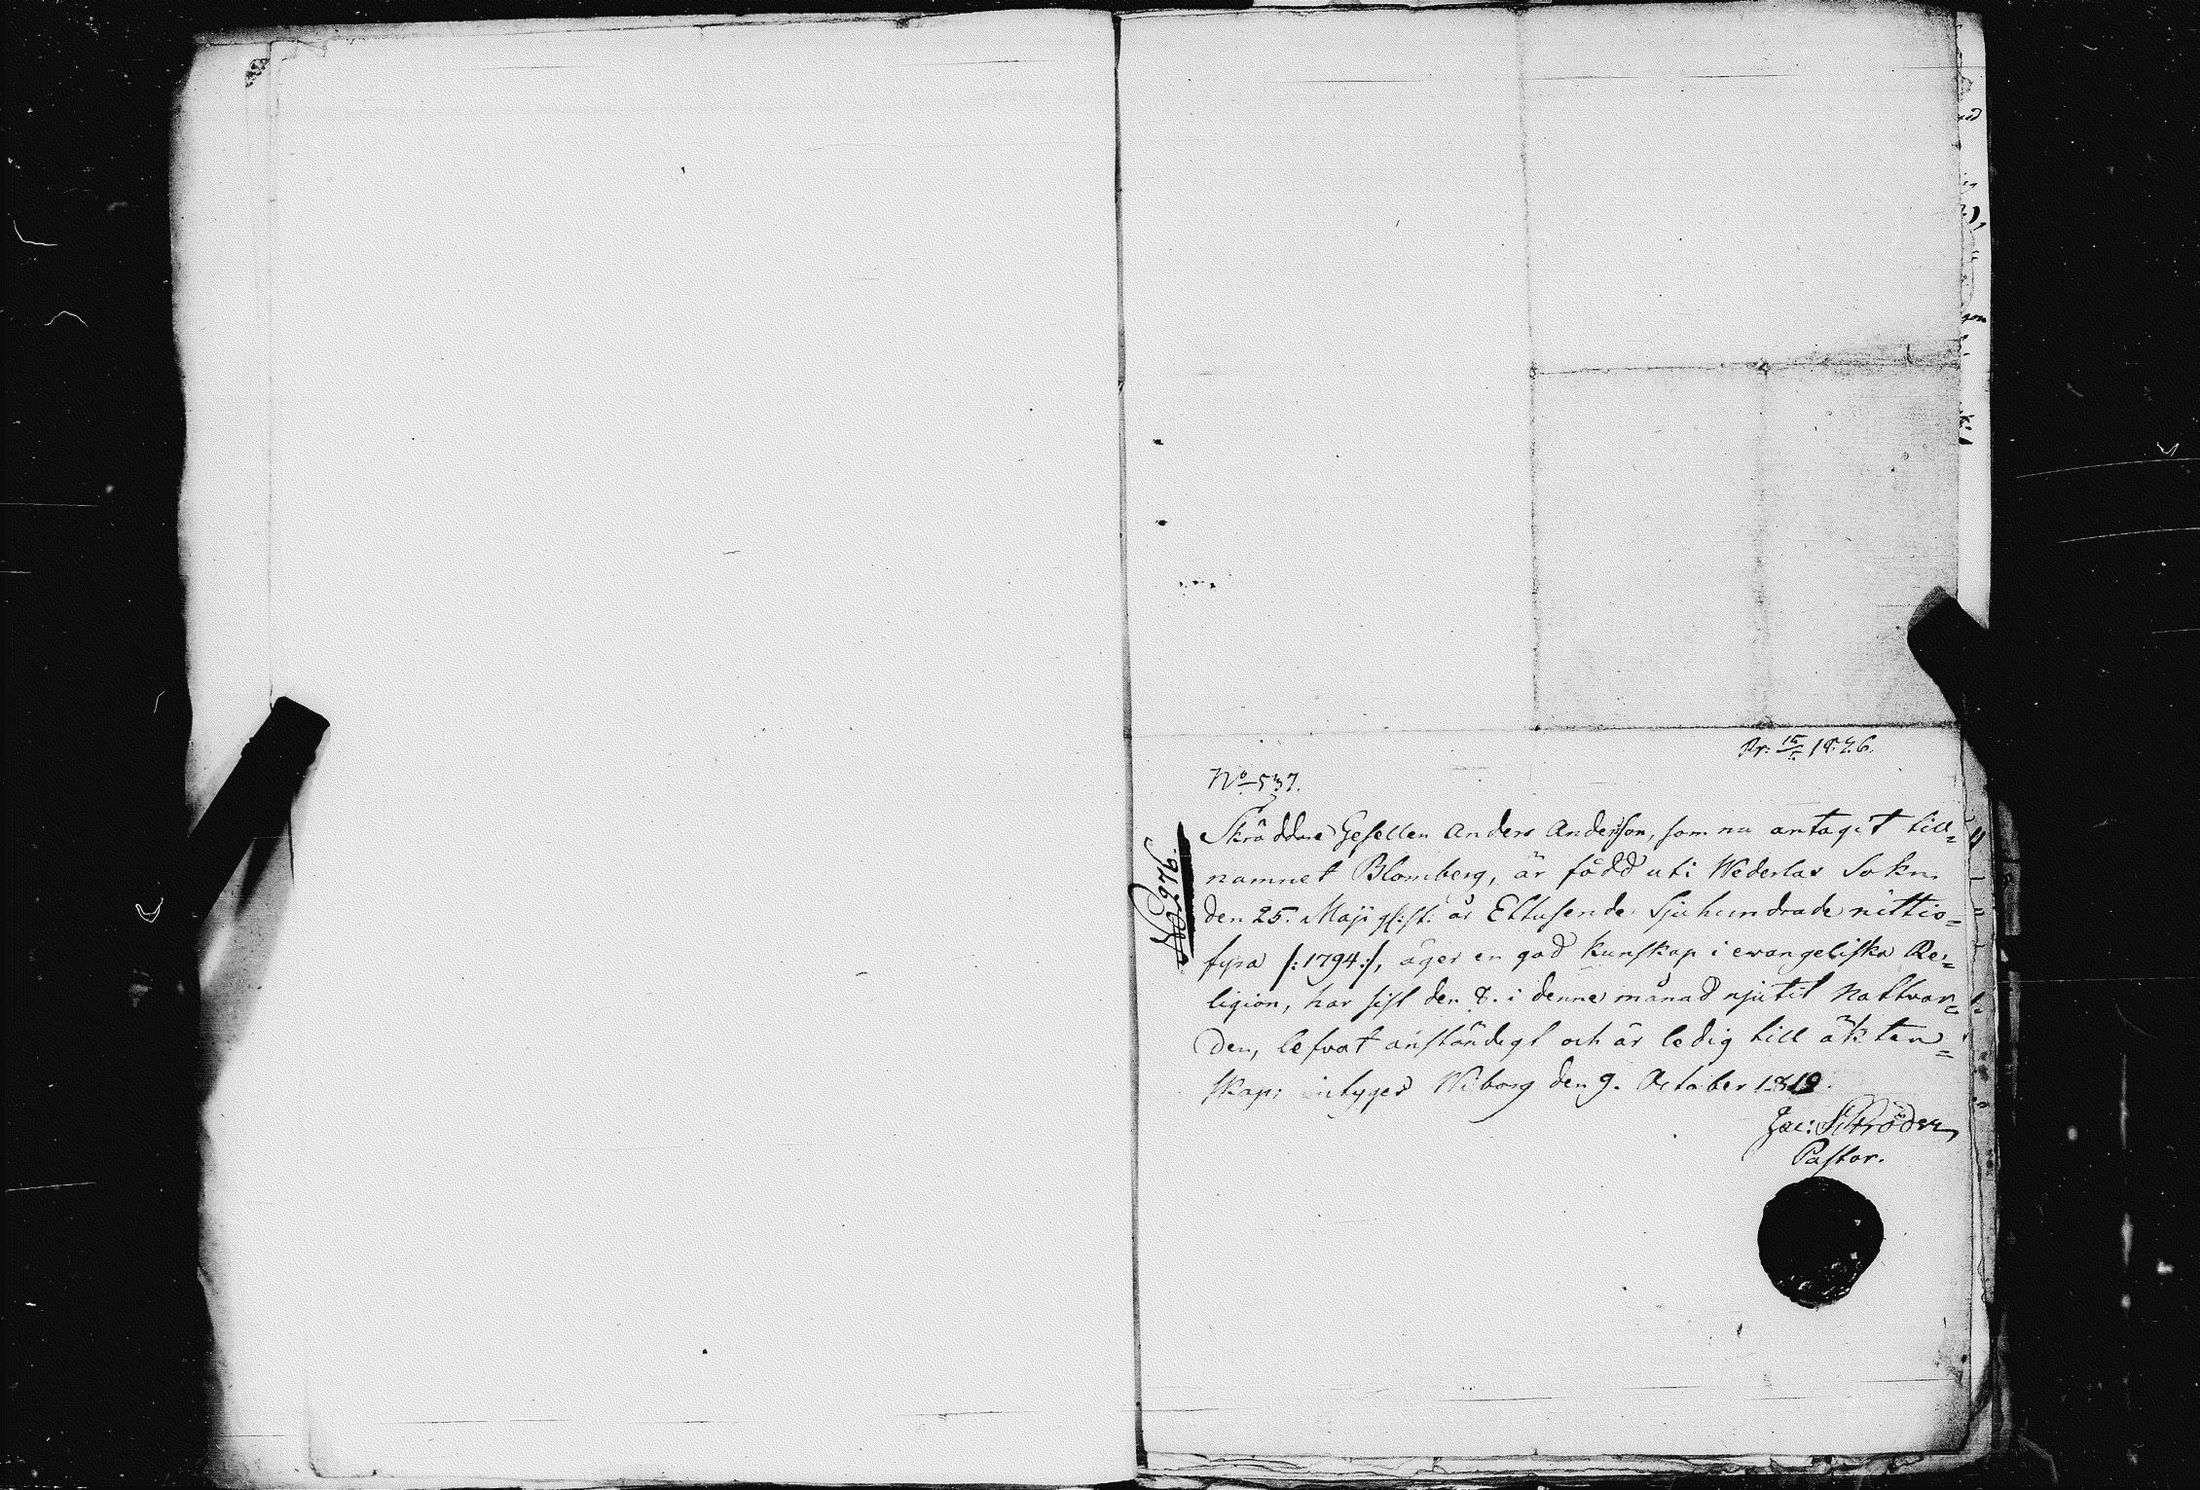 Pr: 15/5 1826.
No 537.
No 276.
Skräddare Gesellen Anders Andersson, som nu antagit till=
namnet Blomberg, är född uti Wederlax Sokn
den 25. Maji åR Ettusende Sjuhundrade nittio=
fyra /:1794:/, äger en god kunskap i evangeliska Re=
ligion, har sist den 8. i denna månad njutit Nattvar=
den, lefvat anständigt och är ledig till äkten=
skap; intygar Wiborg den 9. October 1819.
Jac: Schröder
Pastor.